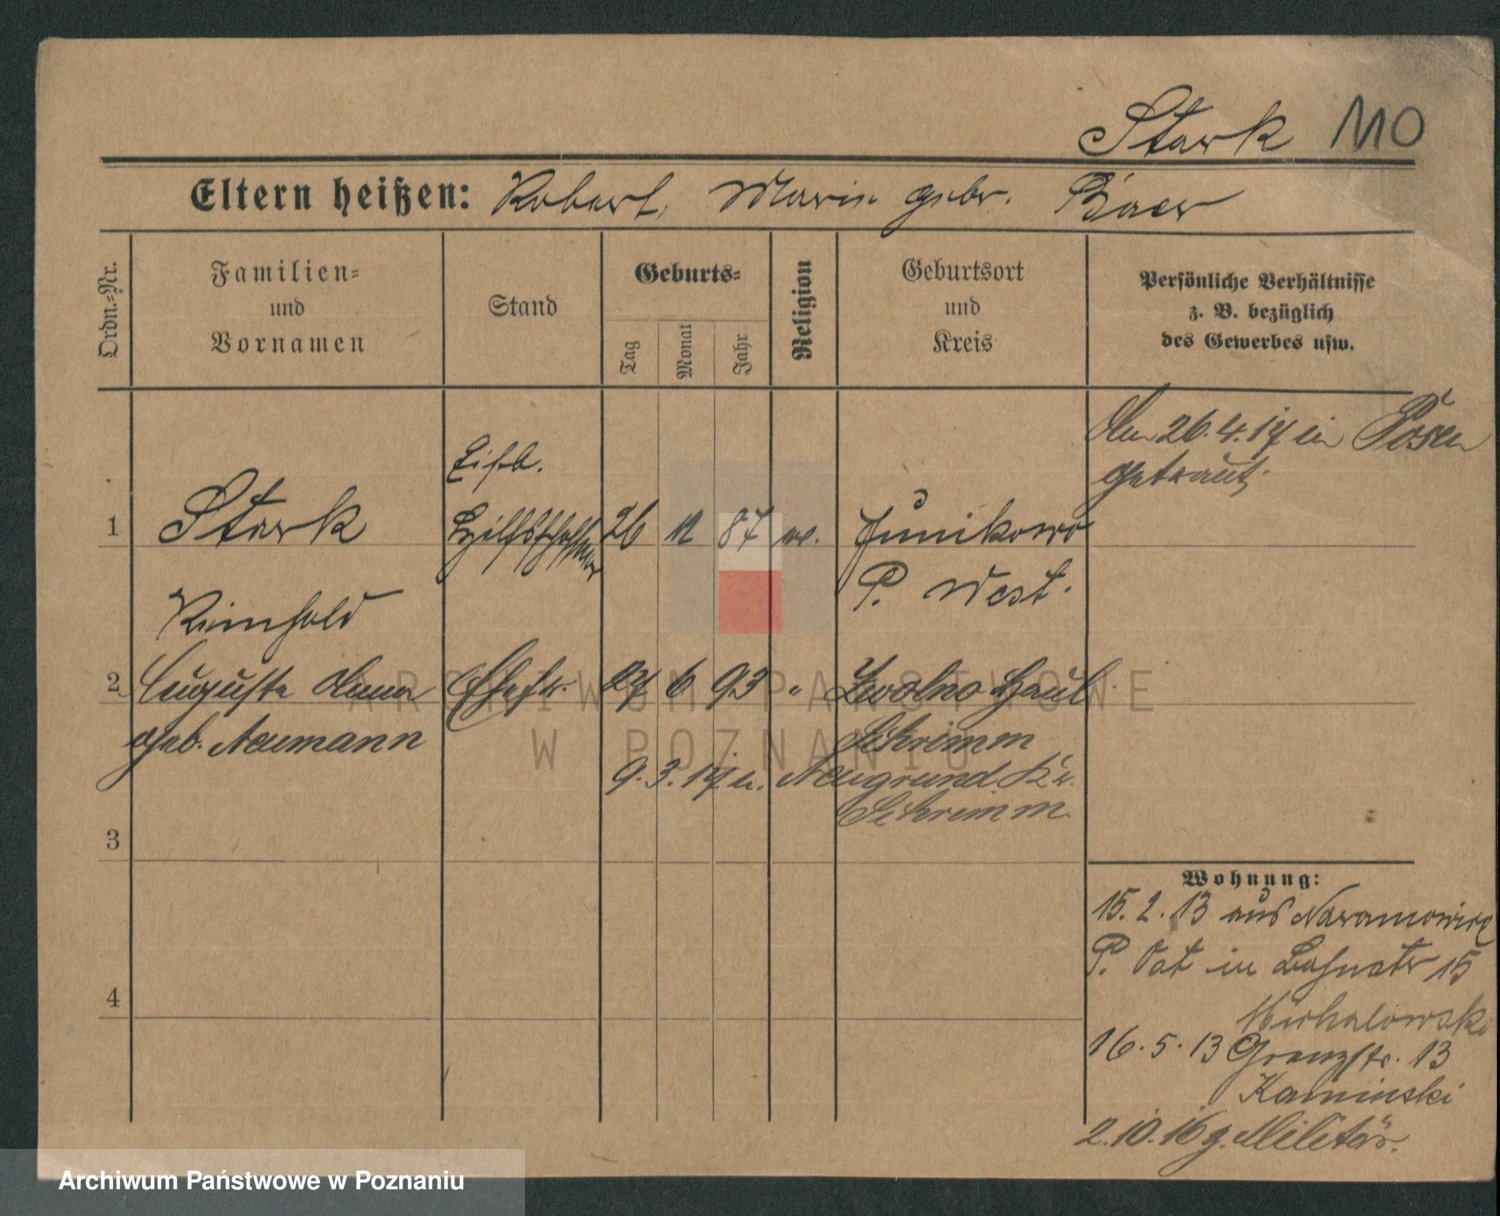 Stark 110
Eltern heißen: Robert, Marie gebr. Baer
Ordn.-Nr.
Familien-
und
Vornamen
Stand
Geburts-
Tag
Monat
Jahr
Religion
Geburtsort
und
Kreis
Persönliche Verhältnisse
z. B. bezüglich
des Gewerbes usw.
Am 26.4.17 in Posen
getraut.
Eisb.
1 Stark Hilfsschaffner 26 12 87 ev. Junikowo
P. West.
Reinhold
2 Auguste Anna Ehefr. 27 6 93 " Zwolno Haul.
geb. Neumann Schrimm
9.3.17 a. Neugrund Kr.
Schrimm
3
4
Wohnung:
15.2.13 aus Naramowice
P. Ost in 15
Michalowski
16.5.13 Grenzstr. 13
Kaminski
2.10.16 z. Militär.
ARCHIWUM PAŃSTWOWE
W POZNANIU
Archiwum Państwowe w Poznaniu